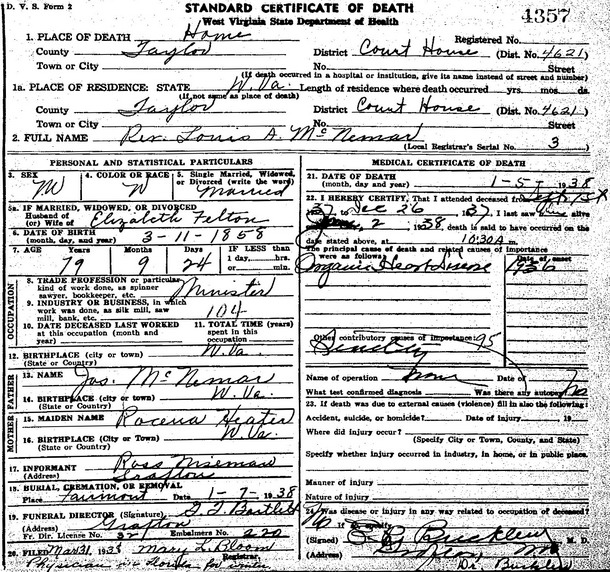 D. V. S. Form 2
STANDARD CERTIFICATE OF DEATH
West Virginia State Department of Health
4357
1. PLACE OF DEATH Home
Registered No.
County Taylor
District Court House (Dist. No. 4621
Town or City
No. Street
(If death occurred in a hospital or institution, give its name instead of street and number)
1a. PLACE OF RESIDENCE: STATE W. Va. Length of residence where death occurred yrs. mos. da.
(If not same as place of death)
County Taylor
District Court House (Dist. No. 4621
Town or City
No. Street
2. FULL NAME Rev. Louis A. McNemar
(Local Registrar's Serial No. 3
PERSONAL AND STATISTICAL PARTICULARS
3. SEX M
4. COLOR OR RACE W
5. Single Married, Widowed, or Divorced (write the word) Married
5a. IF MARRIED, WIDOWED, OR DIVORCED
Husband of
(or) Wife of Elizabeth Felton
6. DATE OF BIRTH
(month, day, and year) 3-11-1858
7. AGE Years Months Days IF LESS than
79 9 24 1 day, hrs.
or min.
OCCUPATION
8. TRADE PROFESSION or particular kind of work done, as spinner sawyer, bookkeeper, etc. Minister
9. INDUSTRY OR BUSINESS, in which work was done, as silk mill, saw mill, bank, etc. 104
10. DATE DECEASED LAST WORKED at this occupation (month and year)
11. TOTAL TIME (years) spent in this occupation
12. BIRTHPLACE (city or town) W. Va.
(State or Country)
FATHER
13. NAME Jas. McNemar
14. BIRTHPLACE (city or town) W. Va.
(State or Country)
MOTHER
15. MAIDEN NAME Rocena Heater
16. BIRTHPLACE (City or Town) W. Va.
(State or Country)
17. INFORMANT Ross
(Address) Grafton
18. BURIAL, CREMATION, OR REMOVAL
Place Fairmont Date 1-7-1938
19. FUNERAL DIRECTOR (Signature) G. F. Bartlett
(Address) Grafton
Fr. Dir. License No. 321 Embalmers No. 220
20. FILED Mar 31, 1938 Mary L. Bloom
Registrar.
Physician in Florida for winter
MEDICAL CERTIFICATE OF DEATH
21. DATE OF DEATH
(month, day, and year) 1-5-1938
22. I HEREBY CERTIFY, That I attended deceased from Sept. 1st
37 to Dec 26 37. I last saw alive
2, 1938, death is said to have occurred on the
date stated above, at 10:30 A m.
The principal cause of death and related causes of importance were as follows: Date of onset
Organic Heart Disease 1936
Other contributory causes of importance: 95
Senility
Name of operation None Date of
What test confirmed diagnosis Was there any autopsy No
23. If death was due to external causes (violence) fill in also the following:
Accident, suicide, or homicide? Date of Injury 19
Where did injury occur?
(Specify City or Town, County, and State)
Specify whether injury occurred in industry, in home, or in public place.
Manner of injury
Nature of injury
24. Was disease or injury in any way related to occupation of deceased?
No If so specify
(Signed) Buckley M. D.
(Address)
Dr. Bucklew